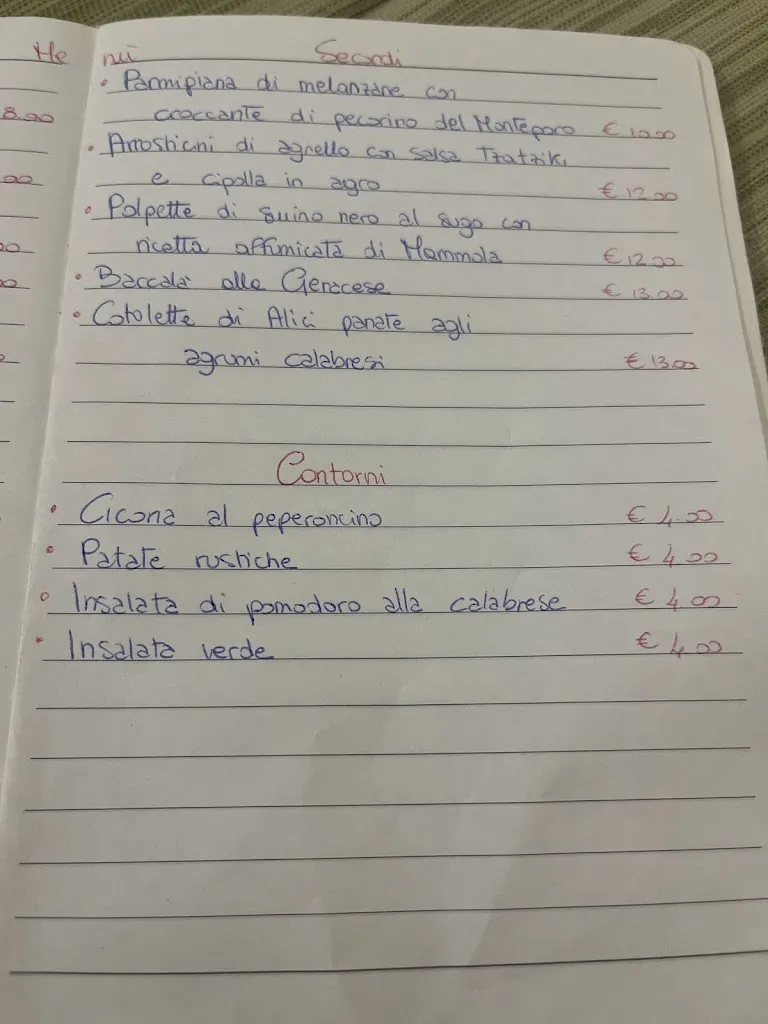 Me nu Secondi
• Parmigiana di melanzane con
croccante di pecorino del Monteporo € 10.00
• Arrosticini di agnello con salsa Tzatziki
e cipolla in agro € 12.00
• Polpette di suino nero al sugo con
ricotta affumicata di Mammola € 12.00
• Baccala' alla Geracese € 13.00
• Cotolette di Alici panate agli
agrumi calabresi € 13.00
Contorni
• Cicoria al peperoncino € 4.00
• Patate rustiche € 4.00
• Insalata di pomodoro alla calabrese € 4.00
• Insalata verde € 4.00
8.00